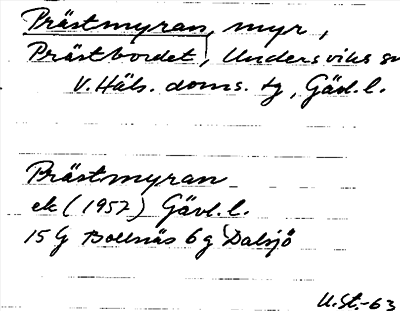 Prästmyran, myr,
Prästbordet, Undersviks sn
V. Häls. doms. tg, Gävl. l.
Prästmyran
ek (1957) Gävl. l.
15 G Bollnäs 6 g Dalsjö
U.St.-63